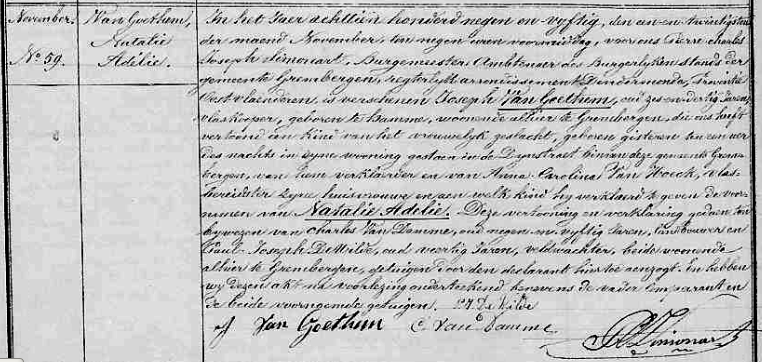 November.
N° 59.
Van Goethem,
Natalie
Adélie.
In het Jaer achttien honderd negen en vyftig, den een en twintigsten
der maend November, ten negen uren voormiddag, voor ons Pierre Charles
Joseph Limonart, Burgemeester Ambtenaer des Burgerlyken stands der
gemeente Grembergen, regterlyk arrondissement Dendermonde, Provintie
Oostvlaenderen, is verschenen Joseph Van Goethem, oud zes en dertig Jaren,
vlaskooper, geboren te Hamme, woonende alhier te Grembergen, die ons heeft
vertoond een kind van het vrouwelyk geslacht, geboren gisteren ten een ure
des nachts in zyne wooning gestaen in de Dynstraet binnen deze gemeente Grem-
bergen, van hem verklaerder en van Anna Carolina Van Hoeck, vlas-
bereidster zyne huisvrouwe en aen welk kind hy verklaerd te geven de voor-
namen van Natalie Adélie. Deze vertooning en verklaring gedaen ten
bywezen van Charles Van Damme, oud negen en vyftig Jaren, landbouwer en
Paul Joseph De Wilde, oud veertig Jaren, veldwachter, beide woonende
alhier te Grembergen, getuigen door den declarant hiertoe aenzogt. En hebben
wy dezen akt na voorlezing onderteekend benevens de vader Comparant en
de beide voornoemde getuigen. P J De Wilde
J Van Goethem C Van Damme
PCLimonart